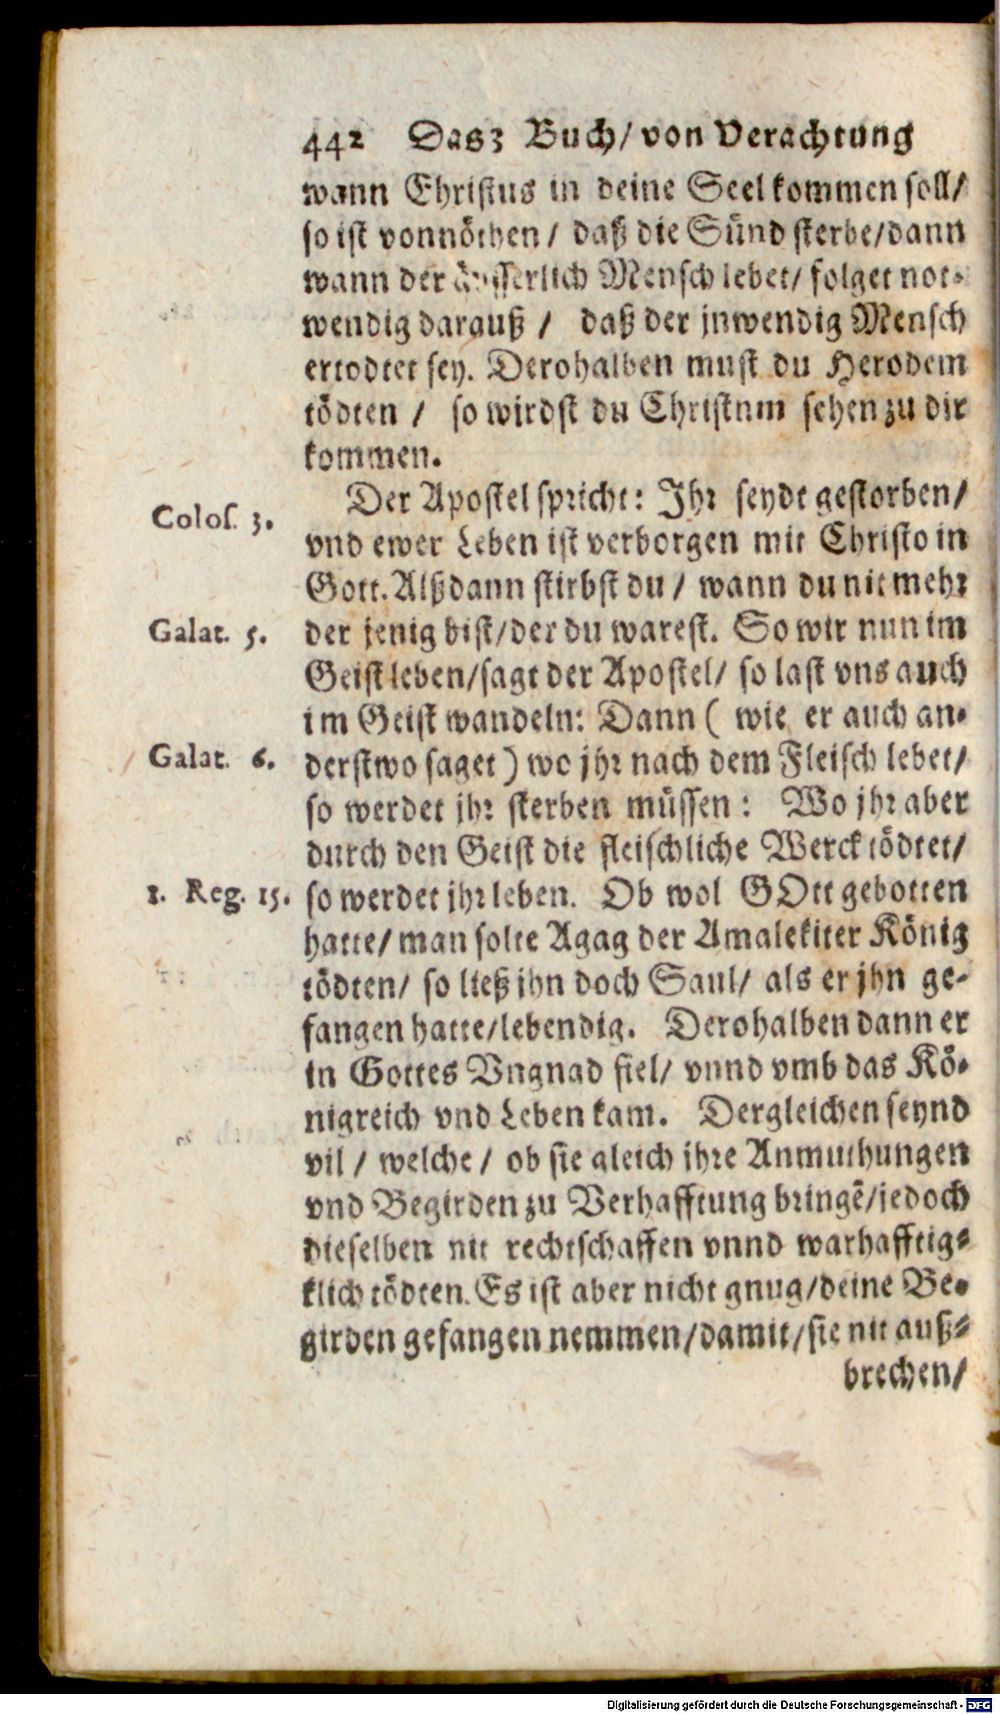 442 Das 3 Buch/ von Verachtung
wann Christus in deine Seel kommen soll/
so ist vonnöthen / daß die Sünd sterbe/dann
wann der äusserlich Mensch lebet/ folget not-
wendig darauß / daß der jnwendig Mensch
ertodtet sey. Derohalben must du Herodem
tödten / so wirdst du Christum sehen zu dir
kommen.
Der Apostel spricht: Ihr seydt gestorben/
Colos. 3.
vnd ewer Leben ist verborgen mit Christo in
Gott. Alßdann stirbst du / wann du nit mehr
Galat. 5. der jenig bist/der du warest. So wir nun im
Geist leben/sagt der Apostel/ so last vns auch
im Geist wandeln: Dann ( wie er auch an-
Galat. 6. derstwo saget ) wo jhr nach dem Fleisch lebet/
so werdet jhr sterben müssen: Wo jhr aber
durch den Geist die fleischliche Werck tödtet/
1. Reg. 15. so werdet jhr leben. Ob wol GOtt gebotten
hatte/ man solte Agag der Amalekiter König
tödten/ so ließ ihn doch Saul/ als er jhn ge-
fangen hatte/lebendig. Derohalben dann er
in Gottes Vngnad fiel/ vnnd vmb das Kö-
nigreich vnd Leben kam. Dergleichen seynd
vil / welche / ob sie gleich ihre Anmuthungen
vnd Begirden zu Verhafftung bringē/jedoch
dieselben nit rechtschaffen vnnd warhafftig-
klich tödten. Es ist aber nicht gnug/deine Be-
girden gefangen nemmen/damit/sie nit auß-
brechen/
Digitalisierung gefördert durch die Deutsche Forschungsgemeinschaft - DFG